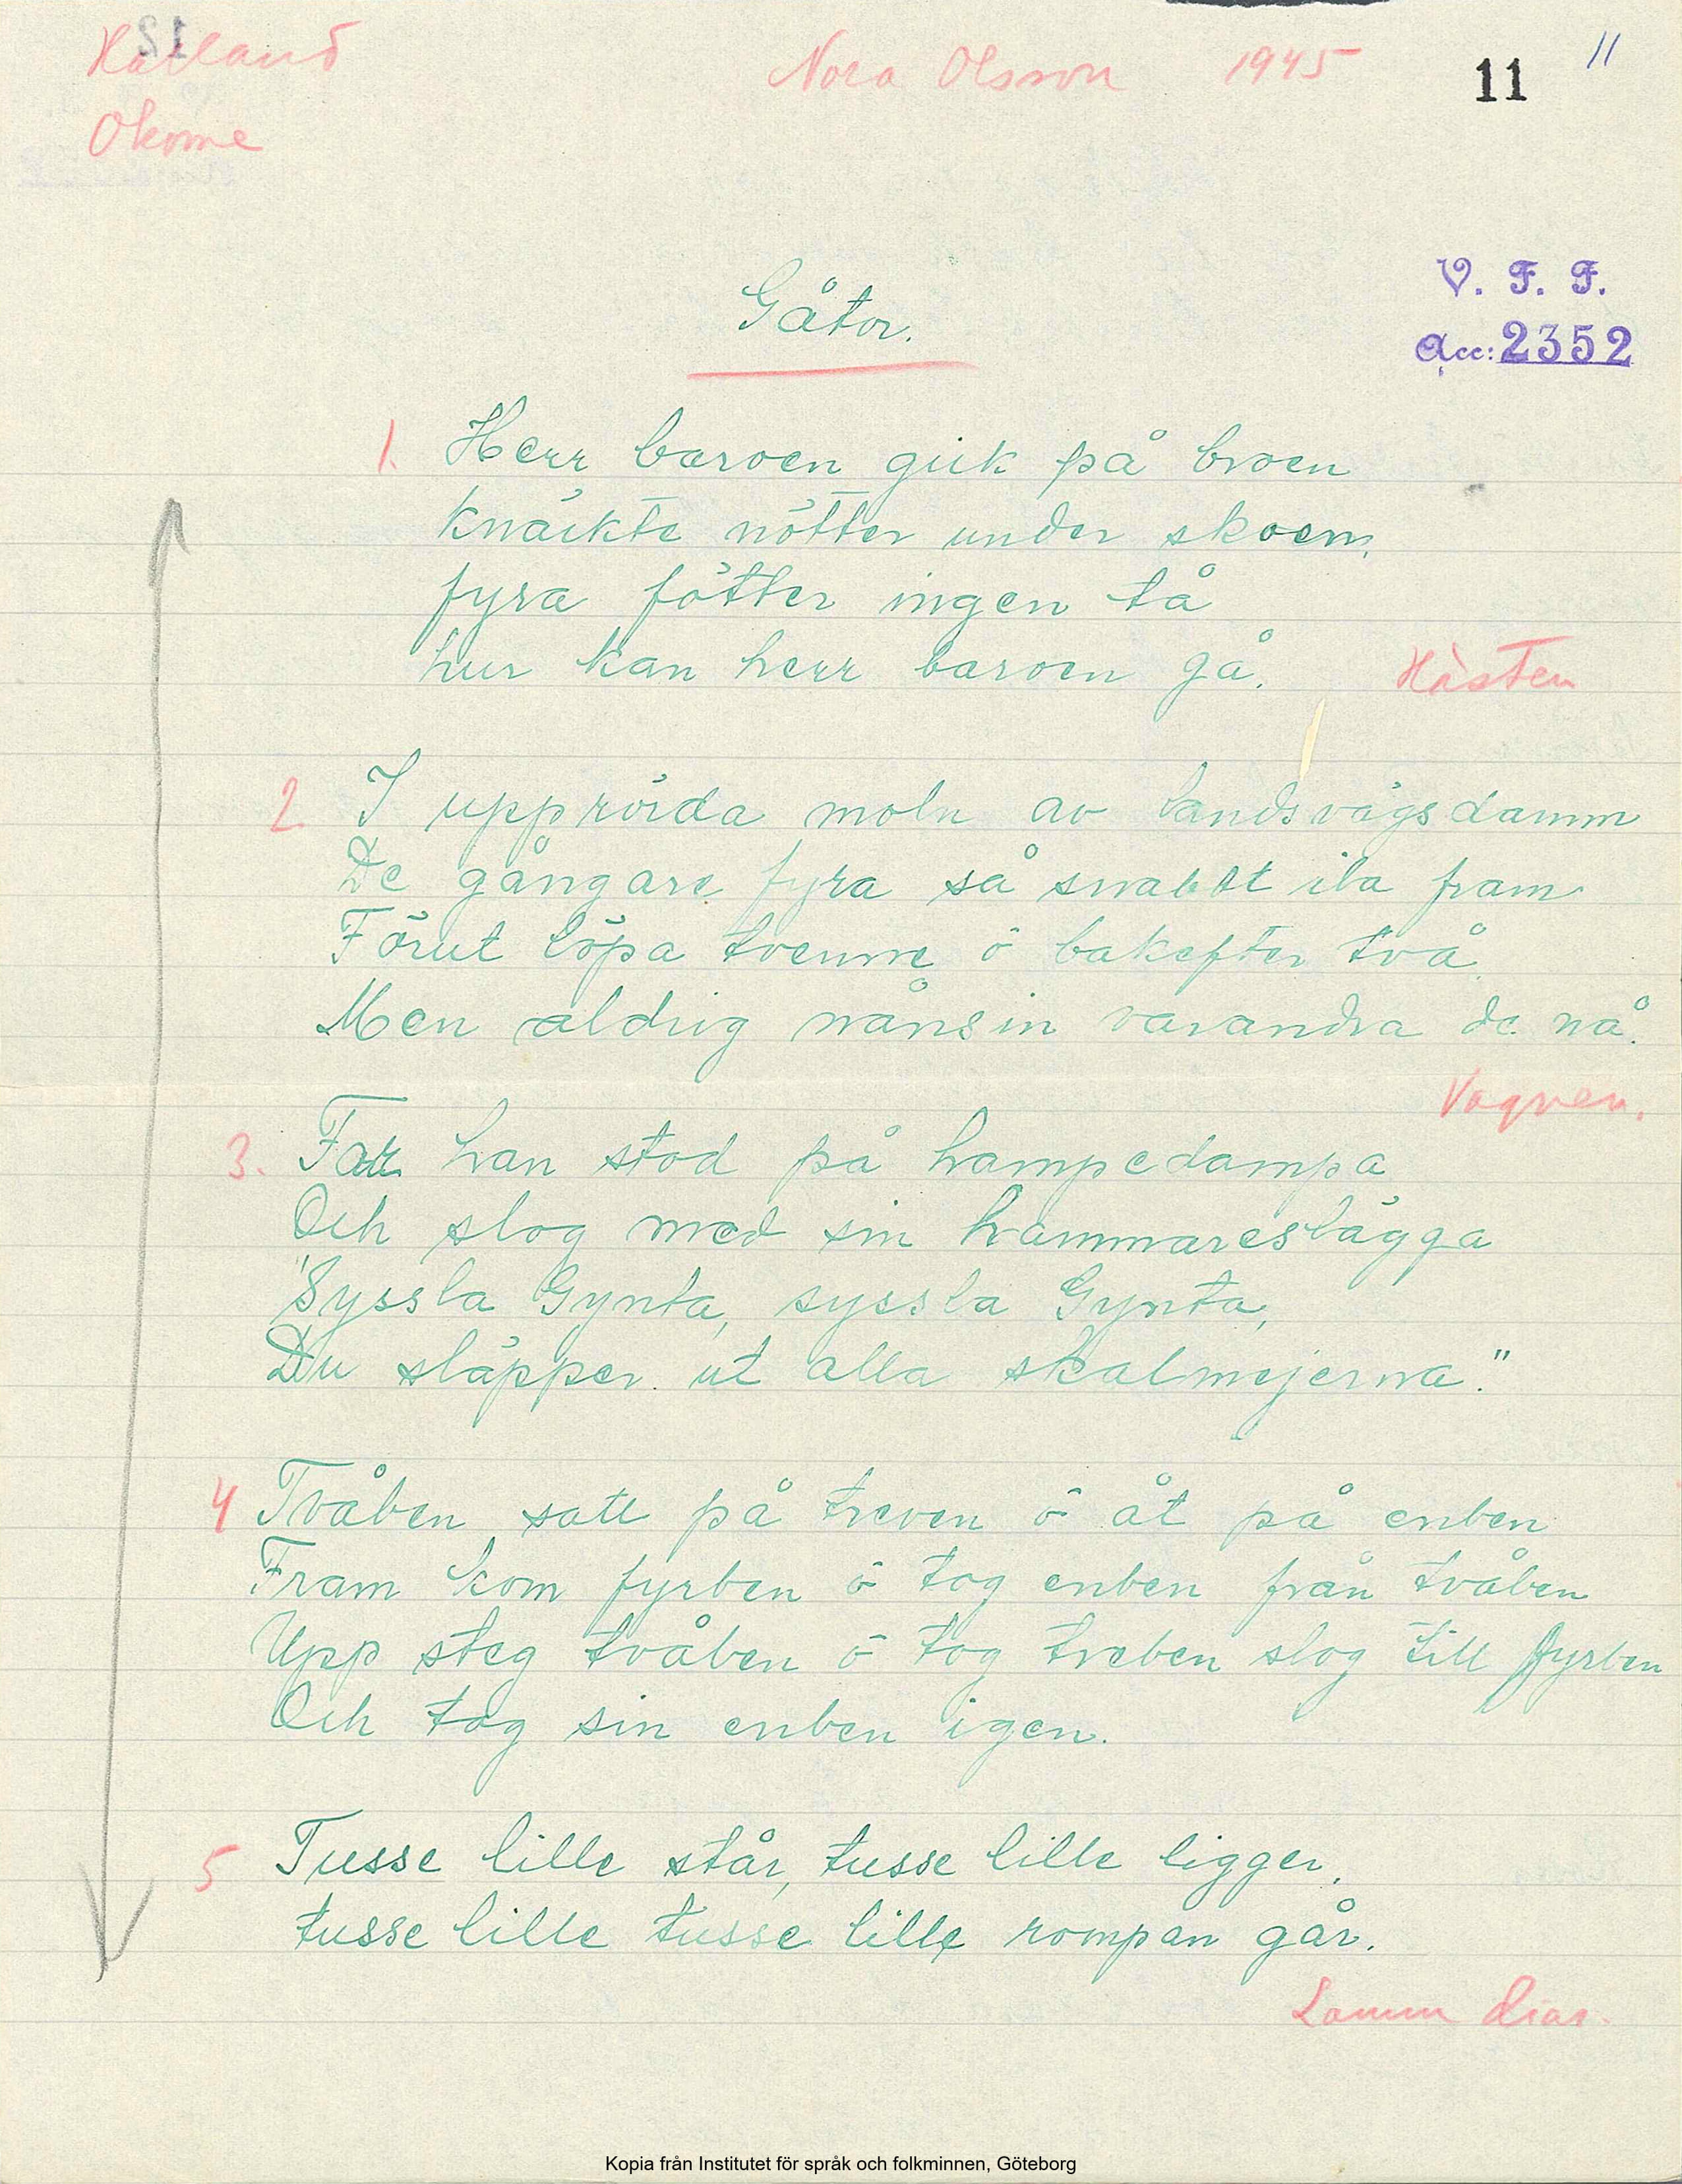 Halland
Nora Olsson 1945 11 11
Okome
V. F. F.
Acc: 2352
Gåtor.
1. Herr baroen gick på broen
knäckte nötter under skoen,
fyra fötter ingen tå
hur kan herr baroen gå.
Hästen
2 I upprörda moln av landsvägsdamm
De gångare fyra så snabbt ila fram
Förut löpa tvenne ô bakefter två
Men aldrig nånsin varandra de nå.
Vagnen.
3. Far han stod på hampedampa
Och slog med sin hammareslägga
"Syssla Gynta, syssla Gynta,
Du släpper ut alla skalmejerna."
4 Tvåben satt på treven ô åt på enben
Fram kom fyrben ô tog enben från tvåben
Upp steg tvåben ô tog treben slog till fyrben
Och tog sin enben igen.
5 Tusse lille står, tusse lille ligger,
tusse lille tusse lille rompan går.
Lamm diar.
Kopia från Institutet för språk och folkminnen, Göteborg